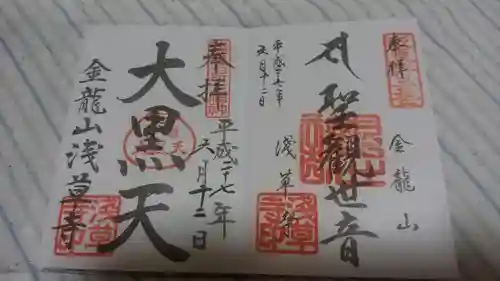 奉拝
聖觀世音
金龍山
淺草寺
平成二十七年
五月十二日
奉拝
大黒天
平成二十七年
五月十二日
金龍山淺草寺